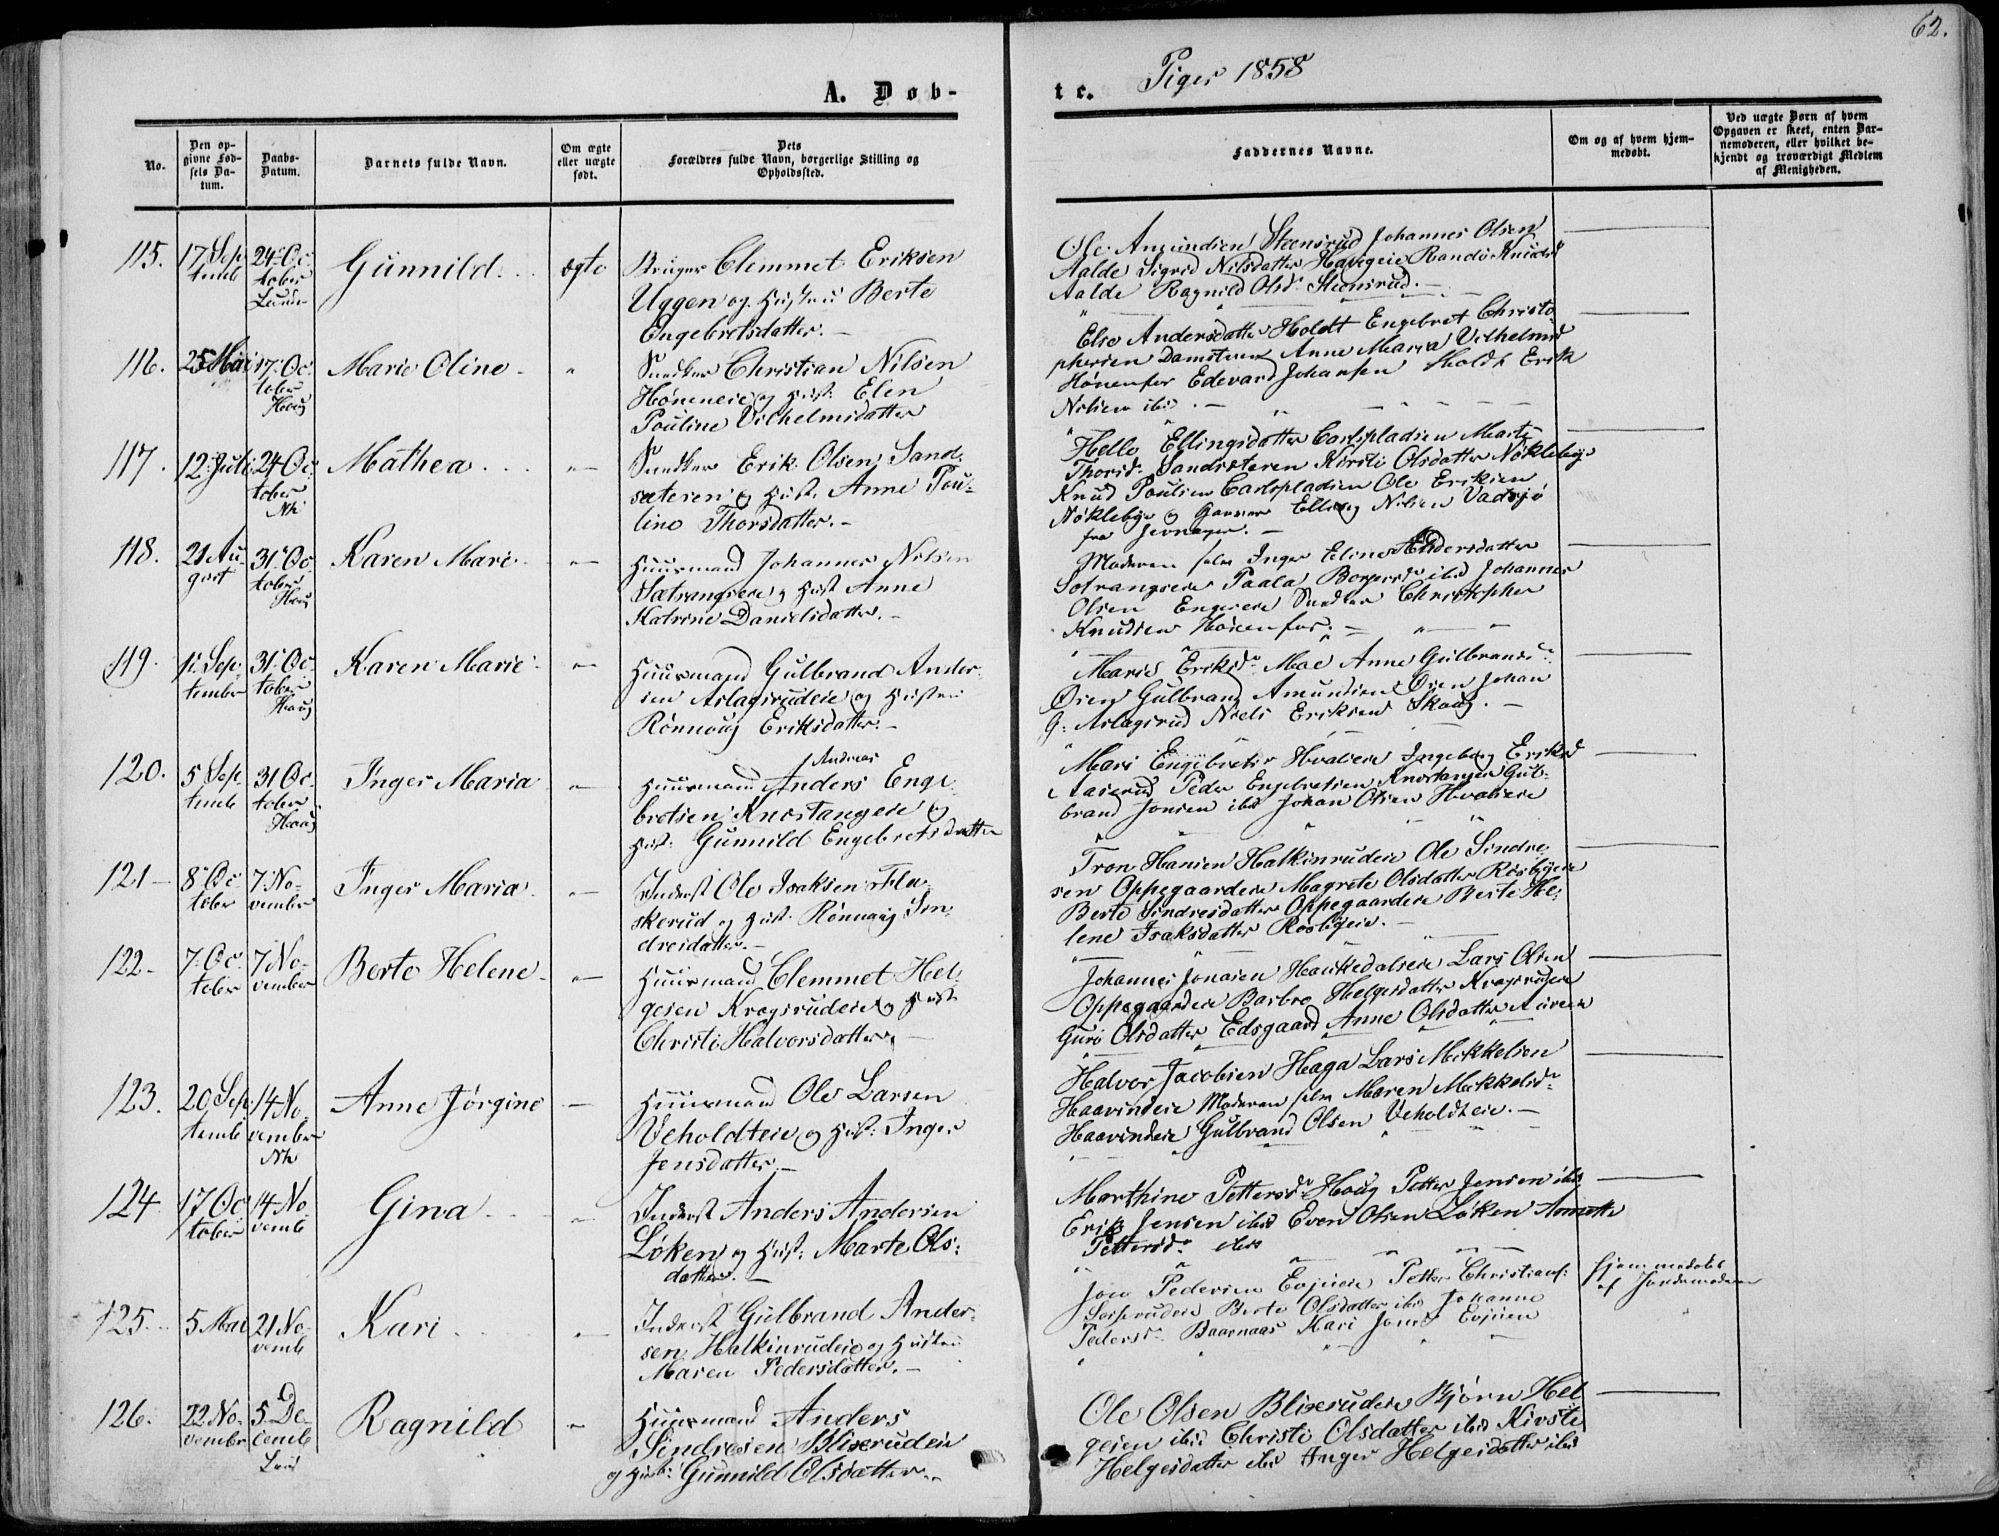 62.
A. Døb-
te.
Piger 1858
No.
Den op-
givne Fød-
sels Da-
tum.
Daabs-
Datum.
Barnets fulde Navn.
Om ægte
eller uægte
født.
Dets
Forældres fulde Navn, borgerlige Stilling og
Opholdssted.
Faddernes Navne.
Om og af hvem hjem-
medøbt.
Ved uægte Børn af hvem
Opgaven er skeet, enten Bar-
nemoderen, eller hvilket be-
kjendt og troværdigt Medlem
af Menigheden.
115.
17 Sep
temb
24 Oc
tober
Gunnild.
ægte
Bruger Clemmet Eriksen
Uggen og Hustru Berte
Engebretsdatter.
Ole Amundsen Steensrud Johannes Olsen
Aalde Sigrid Nilsdatter Haugeie Randi Knuds
Aalde Ragnild Olsd Steensrud.
116.
25 Mai
17 Oc.
tober
Haug
Marie Oline
"
Snedker Christian Nilsen
Høneneie og Hust: Elen
Pouline Vilhelmsdatter
Else Andersdatter Holdt Engebret Christo
phersen Damsteren Anne Maria Vilhelmsd
Hønenfos Edevard Johansen Holdt Erik
Nilsen ibd.
117.
12 Juli
24 Oc.
tober
Nh
Mathea
"
Snedker Erik Olsen Sand-
sæteren og Hust. Anne Pou-
line Thorsdatter.
Helle Ellingsdatter Carlspladsen Marte
Thorsd. Sandsæteren Kirsti Olsdatter Nøkleby
Knud Poulsen Carlspladsen Ole Eriksen
Nøkleby og Elling Nilsen Vadsjø
fra Jevnager.
118.
21 Au-
gost
31 Oc
tober
Haug
Karen Marie
"
Huusmand Johannes Nilsen
Sætrangseie og Hust Anne
Katrine Danielsdatter.
Moderen selv Inger Eline Andersdatter
Sotrangseie Paala Borgersd ibd Johannes
Olsen Engereie Snedker Christopher
Knudsen Hønenfos.
119.
11 Sep.
tember
31 Oc.
tober
Haug
Karen Marie
"
Huusmand Gulbrand Ander-
sen Aslagsrudeie og Hustru
Rønnoug Eriksdatter.
Maris Eriksd. Moe Anne Gulbrandsd.
Øien Gulbrand Amundsen Øien Johan
G. Aslagsrud Niels Eriksen Skoug.
120.
5 Sep.
temb
31 Oc.
tober
Haug
Inger Maria
"
Andreas
Huusmand Anders Enge
bretsen Knestangeie og
Hust. Gunnild Engebretsdatter
Mari Engebretsd Hvaleie Ingeborg Eriksd
Aaserud Peder Engebretsen Knestangen Gul-
brand Jonsen ibd Johan Olsen Hvaleeie
121
8 Oc
tober
7 No-
vember
Inger Maria.
"
Inderst Ole Isaksen Fla-
skerud og Hust. Rønnaug Sin-
dresdatter.
Tron Hansen Halkinrudeie Ole Sindre-
sen Oppegaardeie Magrete Olsdatter Røsbyeie
Berte Sindresdatter Oppegaardeie Berte He-
lene Isaksdatter Røsbyeie.
122
7 Oc
tober
7 No-
vember
Berte Helene
"
Huusmand Clemmet Hel-
gesen Kragsrudeie og Hust
Christi Halvorsdatter.
Johannes Jonasen Haukedalseie Lars Olsen
Oppegaardeie Barbro Helgesdatter Kragsrudeie
Guro Olsdatter Edsgaard Anne Olsdatter
123.
20 Sep
temb
14 No.
vember
Nh
Anne Jørgine
"
Huusmand Ole Larsen
Veholdteie og Hust: Inger
Jensdatter.
Halvor Jacobsen Haga Lars Mikkelsen
Haavindeie Moderen selv Maren Mikkelsd.
Haavindeie Gulbrand Olsen Veholdteie.
124
17 Oc
tober
14 No
vemb
Gina
"
Inderst Anders Andersen
Løken og Hust: Marte Ols:
datter.
Marthine Pettersd. Haug Petter Jensen ibd
Erik Jensen ibd Even Olsen Løken Annette
Pettersd. ibd
125.
5 Mai
21 No-
vemb
Kari
"
Inderst Gulbrand Ander-
sen Halkinrudeie og Hustru
Maren Pedersdatter.
Jon Pedersen Evjueie Petter Christians:
Berte Olsdatter ibd Johanne
Pedersd. Baarnaas Kari Jonsd Evjuen
hjemmedøbt
af Jordemoderen
126.
22 No.
vembr
5 De-
cemb
Ragnild
"
Huusmand Anders
Sindresen Blixerudeie
og Hust: Gunnild Olsdatter
Ole Olsen Blixerudeie Bjørn Hel
gesen ibd Christi Olsdatter ibd Kirsti
Helgesdatter ibd Inger Helgesdatter ibd